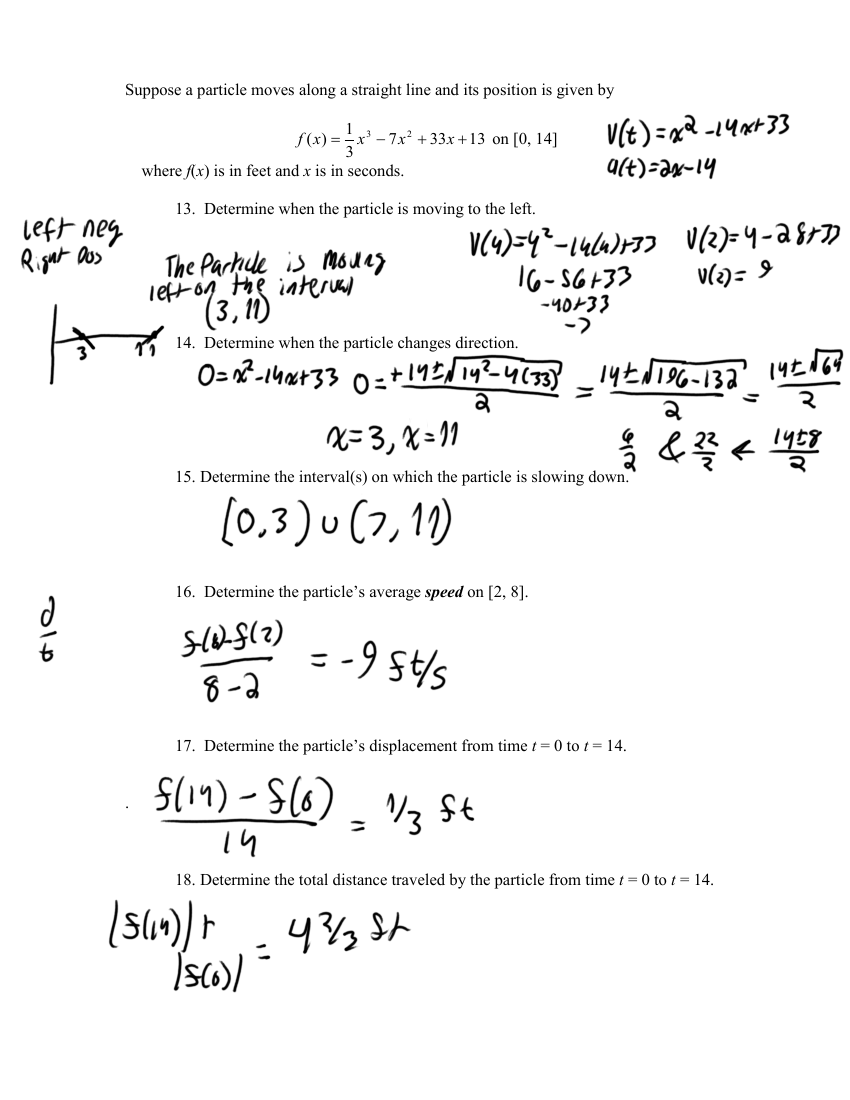 Suppose a particle moves along a straight line and its position is given by
f(x) = 1/3 x³ − 7x² + 33x + 13 on [0, 14]
V(t)=x²-14x+33
a(t)=2x-14
where f(x) is in feet and x is in seconds.
13. Determine when the particle is moving to the left.
left neg
Right pos
The Particle is moving
left on the interval
(3, 11)
V(4)=4²-14(4)+33
16-56+33
-40+33
-7
V(2)=4-28+33
V(2)= 9
3 11
14. Determine when the particle changes direction.
0=x²-14x+33 0=+14±√14²-4(33)/2 = 14±√196-132/2 = 14±√64/2
x=3, x=11
6/2 & 22/2 ← 14±8/2
15. Determine the interval(s) on which the particle is slowing down.
[0,3) ∪ (7, 11)
16. Determine the particle’s average speed on [2, 8].
d/t
f(8)-f(2)/8-2 = -9 ft/s
17. Determine the particle’s displacement from time t = 0 to t = 14.
. f(14) - f(0)/14 = 1/3 ft
18. Determine the total distance traveled by the particle from time t = 0 to t = 14.
|f(14)|+
|f(0)| = 4 2/3 ft